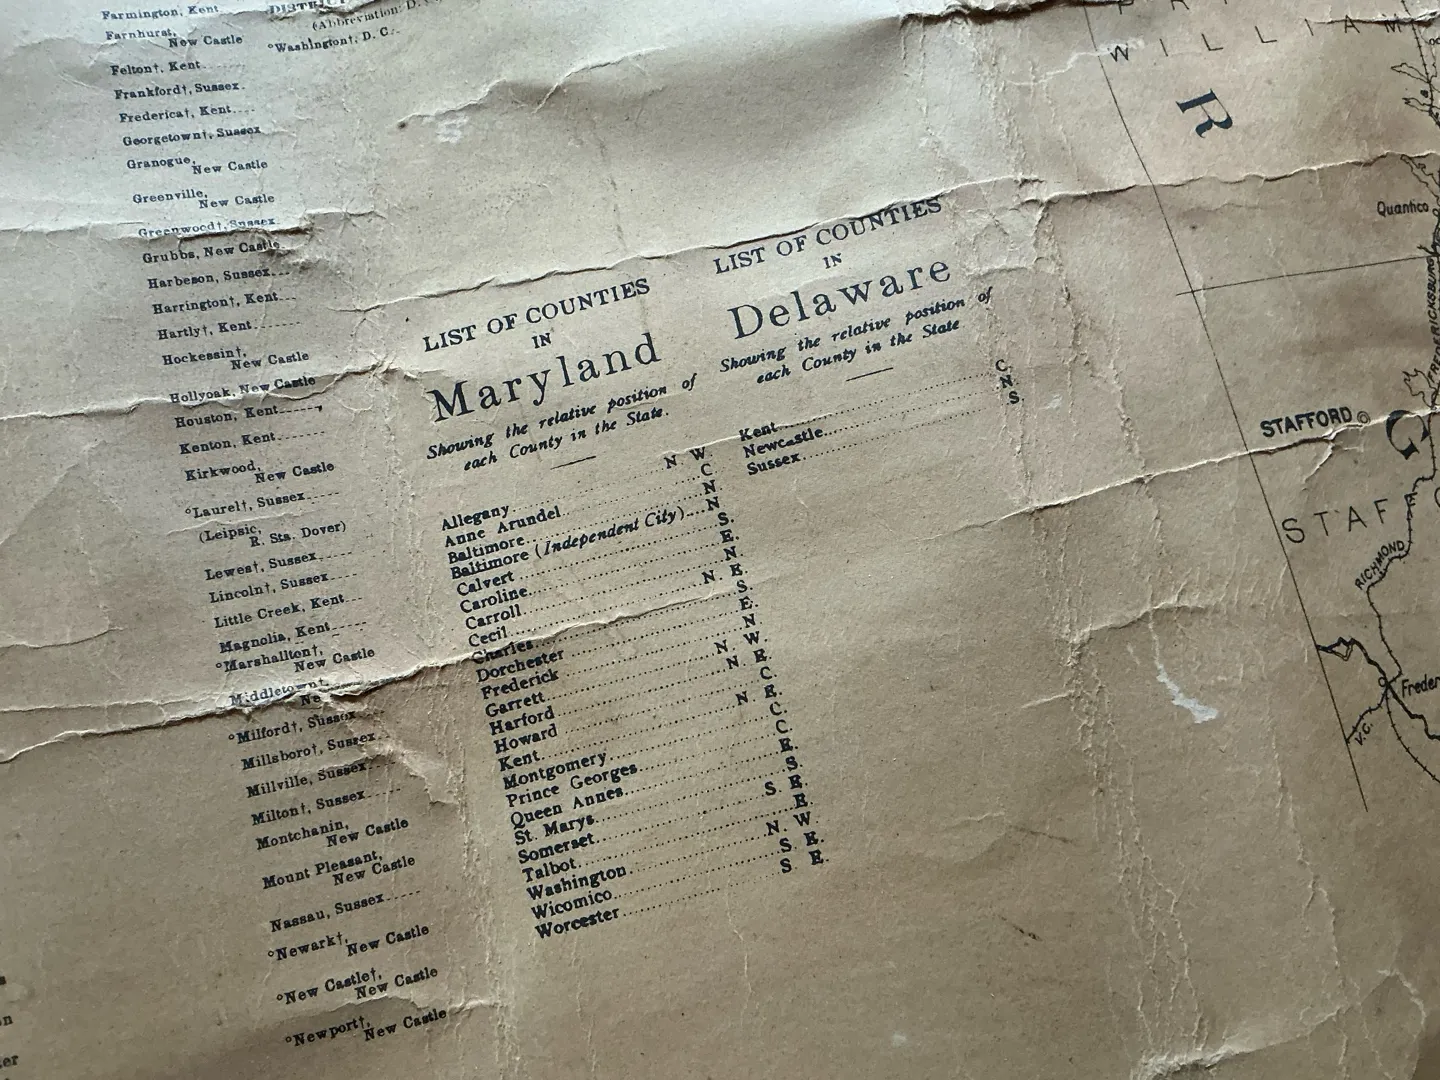 Farmington, Kent
Farnhurst,
New Castle
Felton†, Kent
Frankford†, Sussex
Frederica†, Kent
Georgetown†, Sussex
Granogue,
New Castle
Greenville,
New Castle
Greenwood†, Sussex
Grubbs, New Castle
Harbeson, Sussex
Harrington†, Kent
Hartly†, Kent
Hockessin†,
New Castle
Hollyoak, New Castle
Houston, Kent
Kenton, Kent
Kirkwood,
New Castle
°Laurel†, Sussex
(Leipsic,
R. Sta. Dover)
Lewes†, Sussex
Lincoln†, Sussex
Little Creek, Kent
Magnolia, Kent
°Marshallton†,
New Castle
Middletown†,
Ne
°Milford†, Sussex
Millsboro†, Sussex
Millville, Sussex
Milton†, Sussex
Montchanin,
New Castle
Mount Pleasant,
New Castle
Nassau, Sussex
°Newark†,
New Castle
°New Castle†,
New Castle
°Newport†,
New Castle
(Abbreviation: D.
°Washington†, D. C.
LIST OF COUNTIES
IN
Maryland
Showing the relative position of
each County in the State.
Allegany N. W.
Anne Arundel C.
Baltimore N.
Baltimore (Independent City) N
Calvert S.
Caroline E.
Carroll N.
Cecil N. E.
Charles S.
Dorchester E.
Frederick N
Garrett N. W.
Harford N. E.
Howard C.
Kent N. E.
Montgomery C.
Prince Georges C.
Queen Annes E.
St. Marys S.
Somerset S. E.
Talbot E.
Washington N. W
Wicomico S. E.
Worcester S. E.
LIST OF COUNTIES
IN
Delaware
Showing the relative position of
each County in the State
Kent C.
Newcastle N.
Sussex S.
WILLIAM
R
Quantico
FREDERICKSBURG
STAFFORD
G
STAF
RICHMOND
Freder
V.C.